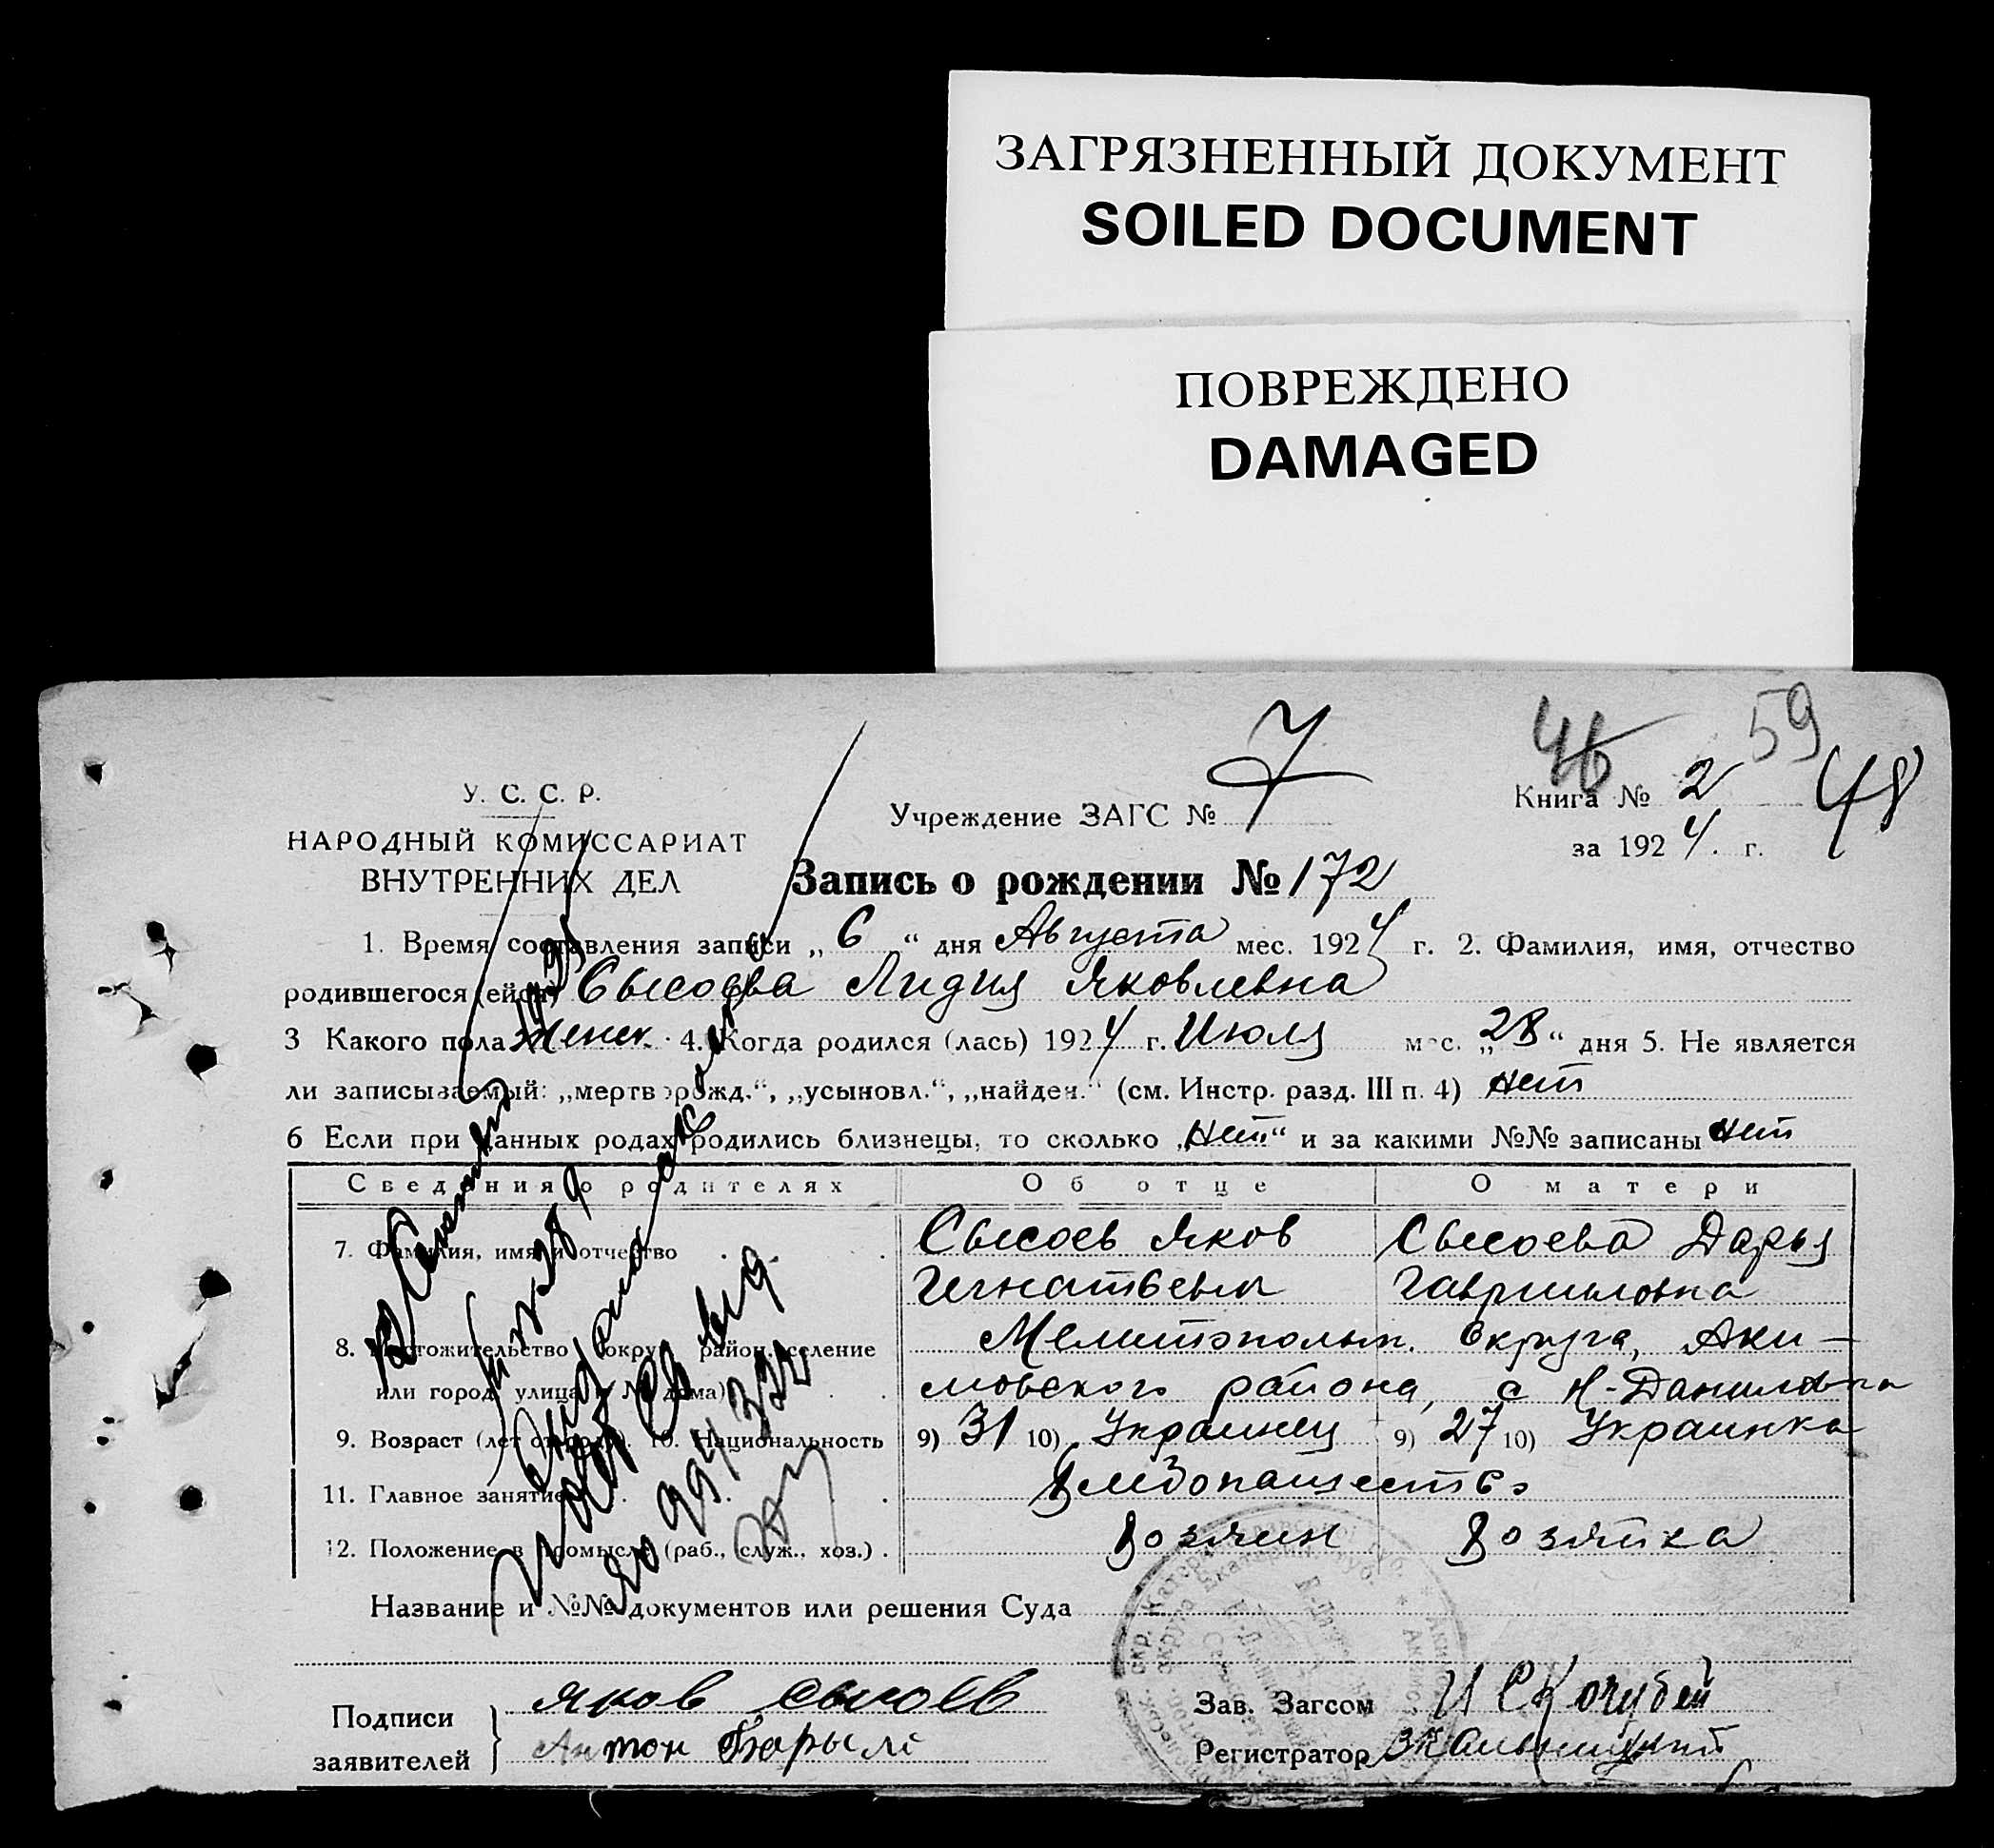 ЗАГРЯЗНЕННЫЙ ДОКУМЕНТ
SOILED DOCUMENT
ПОВРЕЖДЕНО
DAMAGED
46 59
У. С. С. Р.
Учреждение ЗАГС № 7
Книга № 2 48
НАРОДНЫЙ КОМИССАРИАТ
ВНУТРЕННИХ ДЕЛ
за 1924 г.
Запись о рождении № 172
1. Время составления записи „6“ дня Августа мес. 1924 г. 2. Фамилия, имя, отчество
родившегося (ейся) Сысоева Лидия Яковлевна
3 Какого пола Женск. 4. Когда родился (лась) 1924 г. Июля мес. „28“ дня 5. Не является
ли записываемый: „мертворожд.“, „усыновл.“, „найден.“ (см. Инстр. разд. III п. 4) нет
6 Если при данных родах родились близнецы, то сколько „нет“ и за какими №№ записаны нет
Сведения о родителях Об отце О матери
7. Фамилия, имя и отчество . . Сысоев Яков Сысоева Дарья
Игнатьевич Гавриловна
8. Местожительство (округ, район, селение Мелитопольск. округа, Аки-
или город, улица и № дома) . . мовского района, с Н-Даниловка
9. Возраст (лет от роду). 10. Национальность 9) 31 10) Украинец 9) 27 10) Украинка
11. Главное занятие . . . . Хлебопашество
12. Положение в промысле (раб., служ., хоз.) . Хозяин Хозяйка
Название и №№ документов или решения Суда
Подписи
заявителей
Яков Сысоев
Антон
Зав. Загсом И С Кочубей
Регистратор